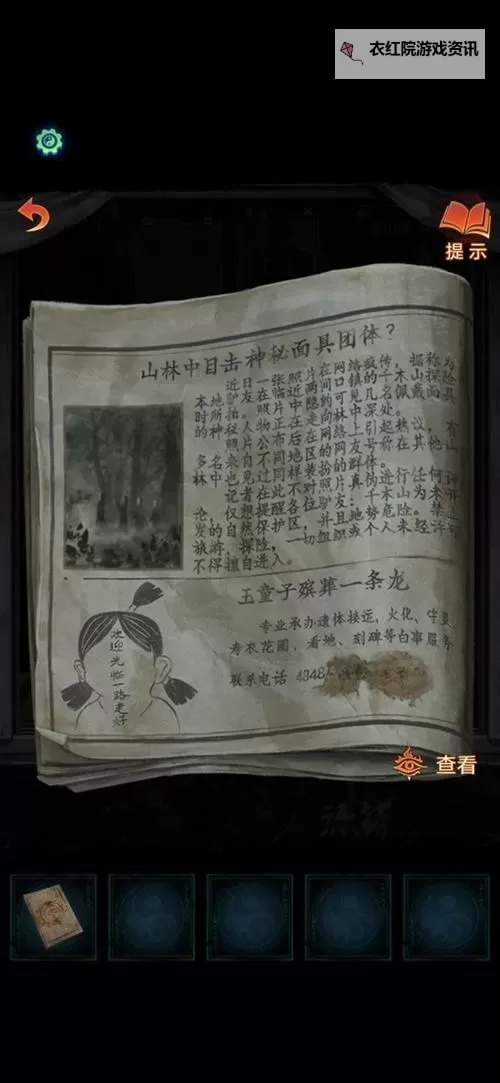 衣红院游戏资讯
提示
山林中目击神秘面具团体？
近日一张照片在网络疯传，据称为
本地驴友在临近两间口镇的千木山探险
时所拍。照片中隐约可见几名佩戴面具
的神秘人物正在走向林中深处。
照片公布后在网络上引起热议，有
多名来自不同地区的网友号称在其他山
林中也见过同样装扮的群体。
记者在此不对照片真伪进行任何评
论，仅想提醒各位驴友：千木山为未开
发的自然保护区，并且地势危险。禁止
旅游、探险，一切组织或个人未经许可
不得擅自进入。
玉童子殡葬一条龙
专业承办遗体接运，火化、守灵、
寿衣花圈，看地、刻碑等白事服务
联系电话 4348
欢迎光临一路走好
查看